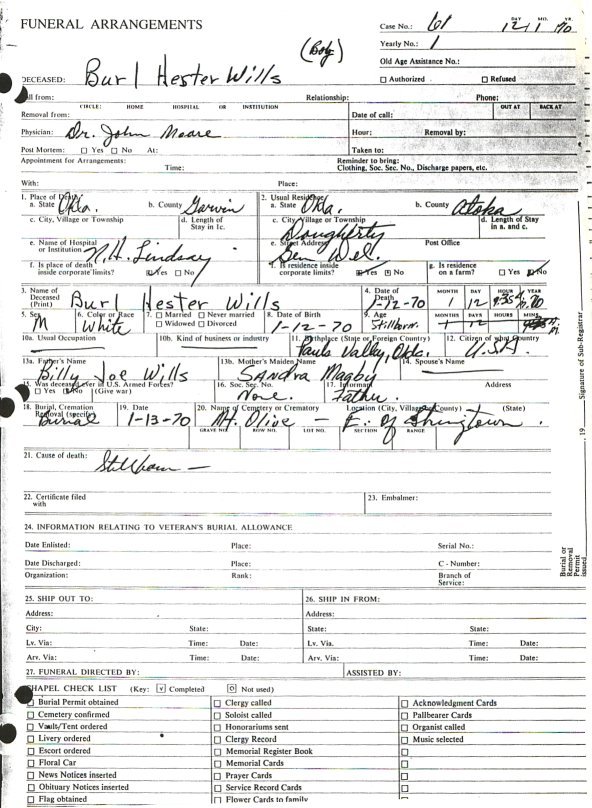 FUNERAL ARRANGEMENTS
Case No.: 61 DAY MO. YR. 12 1 70
Yearly No.: 1
(Boy)
Old Age Assistance No.:
DECEASED: Burl Hester Wills
☐ Authorized ☐ Refused
Call from: Relationship: Phone:
CIRCLE: HOME HOSPITAL OR INSTITUTION OUT AT BACK AT
Removal from: Date of call:
Physician: Dr. John Moore Hour: Removal by:
Post Mortem: ☐ Yes ☐ No At: Taken to:
Appointment for Arrangements: Reminder to bring:
Time: Clothing, Soc. Sec. No., Discharge papers, etc.
With: Place:
1. Place of Death 2. Usual Residence
a. State Okla. b. County Garwin a. State Okla. b. County Atoka
c. City, Village or Township d. Length of Stay in 1c. c. City, Village or Township Dougherty d. Length of Stay in a. and c.
e. Name of Hospital or Institution N.H. Lindsay e. Street Address Gen Del. Post Office
f. Is place of death inside corporate limits? ☑ Yes ☐ No f. Is residence inside corporate limits? ☑ Yes ☒ No g. Is residence on a farm? ☐ Yes ☑ No
3. Name of Deceased (Print) Burl Hester Wills 4. Date of Death 1-12-70 MONTH DAY HOUR YEAR 1 12 9:35 70
5. Sex M 6. Color or Race White 7. ☐ Married ☐ Never married ☐ Widowed ☐ Divorced 8. Date of Birth 1-12-70 9. Age Stillborn. MONTHS DAYS HOURS MINS. 1 12
10a. Usual Occupation 10b. Kind of business or industry 11. Birthplace (State or Foreign Country) Pauls Valley, Okla. 12. Citizen of what Country U.S.A.
13a. Father's Name Billy Joe Wills 13b. Mother's Maiden Name SANdRA Magby 14. Spouse's Name
15. Was deceased ever in U.S. Armed Forces? ☐ Yes ☑ No (Give war) 16. Soc. Sec. No. None. 17. Informant Father. Address
18. Burial, Cremation Removal (specify) Burial 19. Date 1-13-70 20. Name of Cemetery or Crematory Mt. Olive – Location (City, Village, County) (State) E. of
GRAVE NO. ROW NO. LOT NO. SECTION RANGE
21. Cause of death:
Stillborn –
22. Certificate filed with 23. Embalmer:
24. INFORMATION RELATING TO VETERAN'S BURIAL ALLOWANCE
Date Enlisted: Place: Serial No.:
Date Discharged: Place: C - Number:
Organization: Rank: Branch of Service:
25. SHIP OUT TO: 26. SHIP IN FROM:
Address: Address:
City: State: State: State:
Lv. Via: Time: Date: Lv. Via. Time: Date:
Arv. Via: Time: Date: Arv. Via: Time: Date:
27. FUNERAL DIRECTED BY: ASSISTED BY:
CHAPEL CHECK LIST (Key: ☑ Completed ⊡ Not used)
☐ Burial Permit obtained ☐ Clergy called ☐ Acknowledgment Cards
☐ Cemetery confirmed ☐ Soloist called ☐ Pallbearer Cards
☐ Vault/Tent ordered ☐ Honorariums sent ☐ Organist called
☐ Livery ordered ☐ Clergy Record ☐ Music selected
☐ Escort ordered ☐ Memorial Register Book ☐
☐ Floral Car ☐ Memorial Cards ☐
☐ News Notices inserted ☐ Prayer Cards ☐
☐ Obituary Notices inserted ☐ Service Record Cards ☐
☐ Flag obtained ☐ Flower Cards to family
19 Signature of Sub-Registrar
Burial or Removal Permit issued